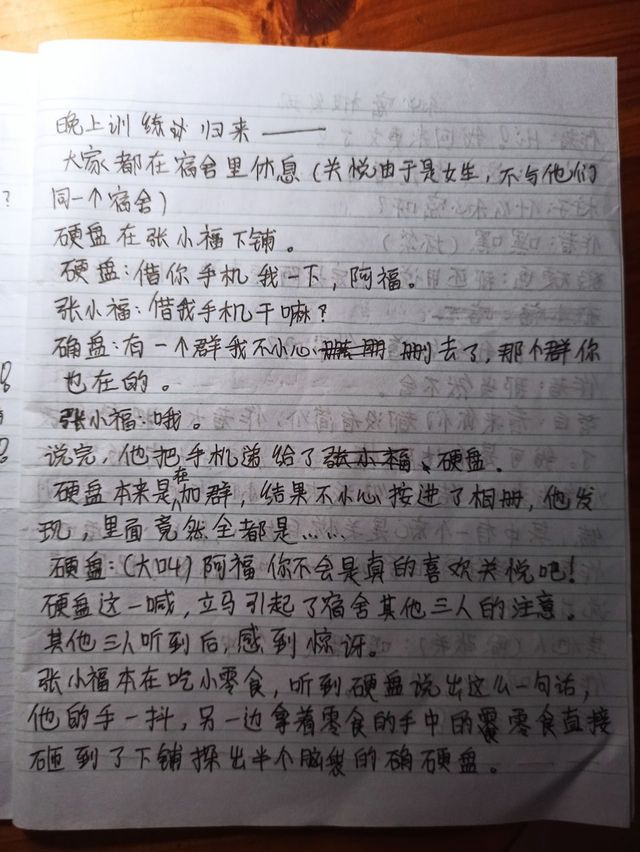 晚上训练归来——
大家都在宿舍里休息(关悦由于是女生,不与他们
同一个宿舍)
硬盘在张小福下铺。
硬盘:借你手机我一下,阿福。
张小福:借我手机干嘛?
确盘:有一个群我不小心删去了,那个群你
也在的。
张小福:哦。
说完,他把手机递给了硬盘.
硬盘本来是在加群,结果不小心按进了相册,他发
现,里面竟然全都是……
硬盘:(大叫)阿福你不会是真的喜欢关悦吧!
硬盘这一喊,立马引起了宿舍其他三人的注意。
其他三人听到后,感到惊讶。
张小福本在吃小零食,听到硬盘说出这么一句话,
他的手一抖,另一边拿着零食的手中的零食直接
砸到了下铺探出半个脑袋的硬盘。